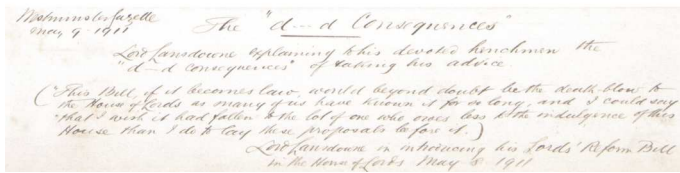 Westminster Gazette
May 9 - 1911
The "d---d Consequences"
Lord Lansdowne explaining to his devoted henchmen the
"d--d consequences" of taking his advice.
("This Bill, if it becomes law, would beyond doubt be the death-blow to
the House of Lords as many of us have known it for so long, and I could say
that I wish it had fallen to the lot of one who owes less to the indulgence of this
House than I do to lay these proposals before it.)
Lord Lansdowne in introducing his Lords' Reform Bill
in the House of Lords May 8 1911